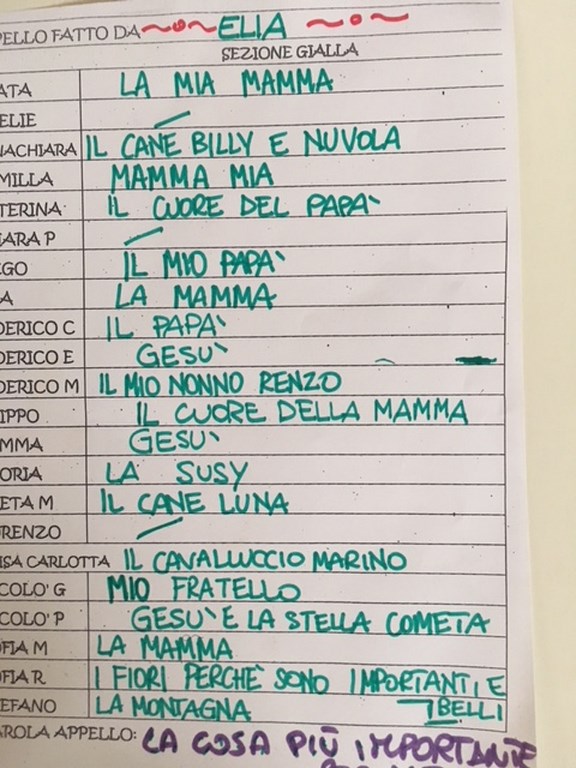 PELLO FATTO DA ELIA
SEZIONE GIALLA
ATA LA MIA MAMMA
ELIE
NACHIARA IL CANE BILLY E NUVOLA
MILLA MAMMA MIA
TERINA IL CUORE DEL PAPA'
IARA P
EGO IL MIO PAPA'
A LA MAMMA
DERICO C IL PAPA'
DERICO E GESU'
DERICO M IL MIO NONNO RENZO
IPPO IL CUORE DELLA MAMMA
MMA GESU'
ORIA LA SUSY
ETA M IL CANE LUNA
RENZO
ISA CARLOTTA IL CAVALLUCCIO MARINO
COLO' G MIO FRATELLO
COLO' P GESU' E LA STELLA COMETA
FIA M LA MAMMA
FIA R I FIORI PERCHE' SONO IMPORTANTI E
EFANO LA MONTAGNA BELLI
AROLA APPELLO: LA COSA PIÙ IMPORTANTE